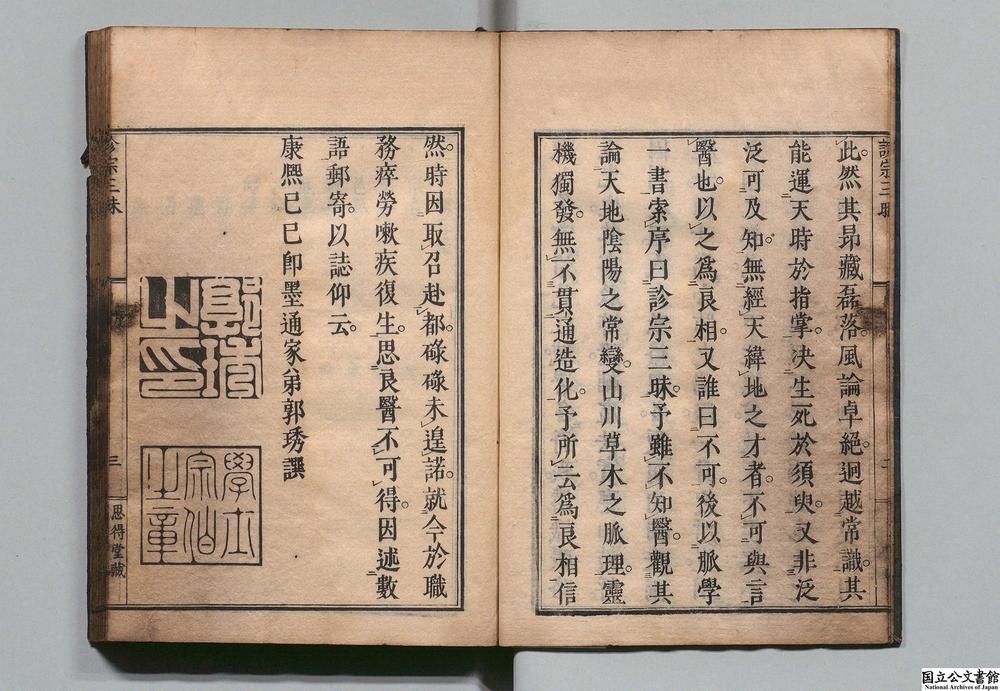 此然其昻藏磊落風論卓絕迥越常識其
能運天時於指掌决生死於須臾又非泛
泛可及知無經天緯地之才者不可與言
醫也以之爲良相又誰曰不可後以脈學
一書索序曰診宗三昧予雖不知醫觀其
論天地陰陽之常變山川草木之脈理靈
機獨發無不貫通造化予所云爲良相信
診宗三昧
二
然時因取召赴都碌碌未遑諾就今於職
務瘁勞嗽疾復生思良醫不可得因述數
語郵寄以誌仰云
康熈己巳卽墨通家弟郭琇譔
郭琇之印
學士宗伯之章
診宗三昧
三
思得堂藏
国立公文書館
National Archives of Japan